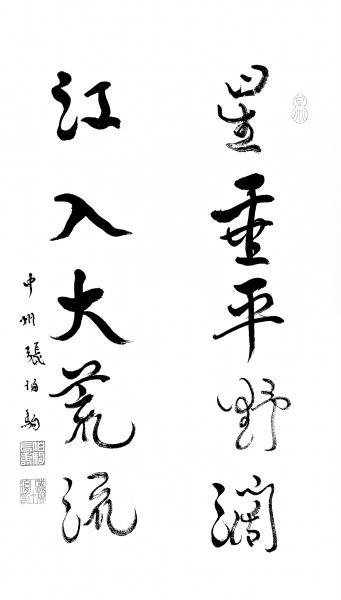 星垂平野濶
江入大荒流
中州張伯駒